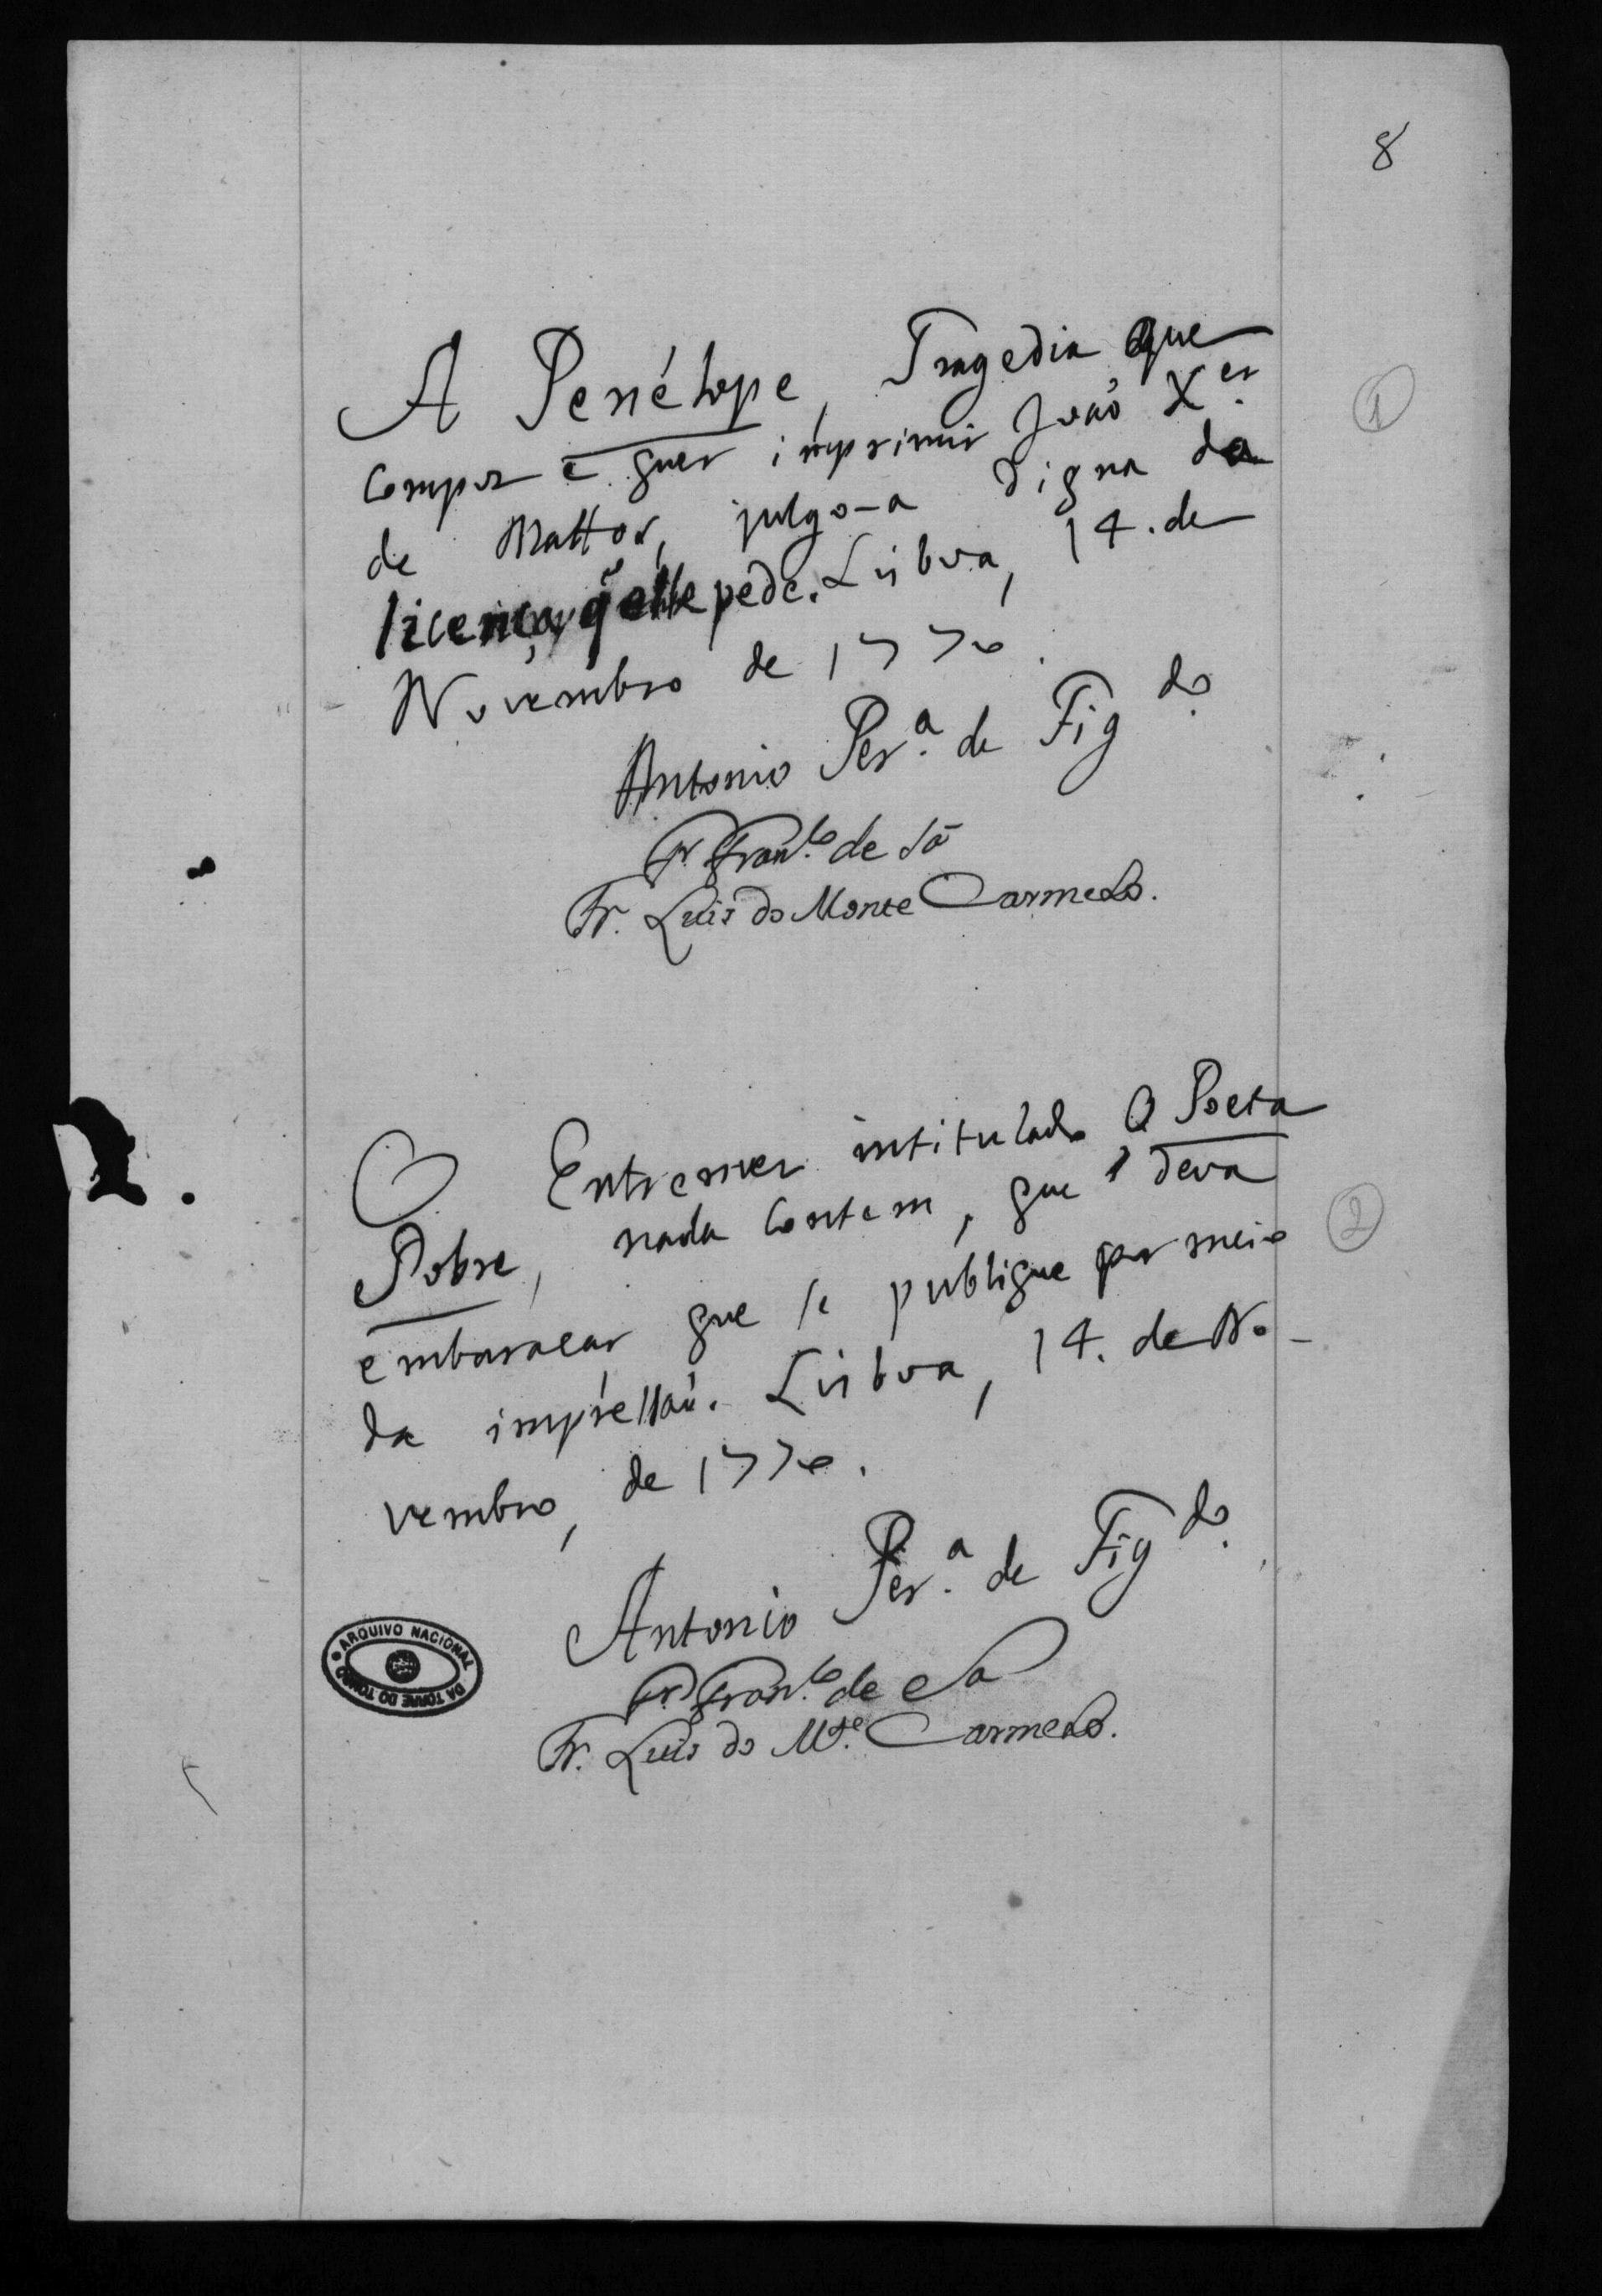 8
A Penélope, Tragedia que
1
compoz e quer imprimir João X.er
de Mattos, julgo-a digna da
licença, q̃ elle pede. Lisboa, 14. de
Novembro de 1770.
Antonio Per.ª de Fig.do
Fr. Fran.co de Sá
Fr. Luis do Monte Carmelo.
O Entremez intitulado O Poeta
Pobre, nada contem, que deva
2
embaraçar que se publique por meio
da impressaõ. Lisboa, 14. de No-
vembro, de 1770.
Antonio Per.ª de Fig.do
Fr. Fran.co de Sa
Fr. Luis do M.te Carmelo.
ARQUIVO NACIONAL DA TORRE DO TOMBO